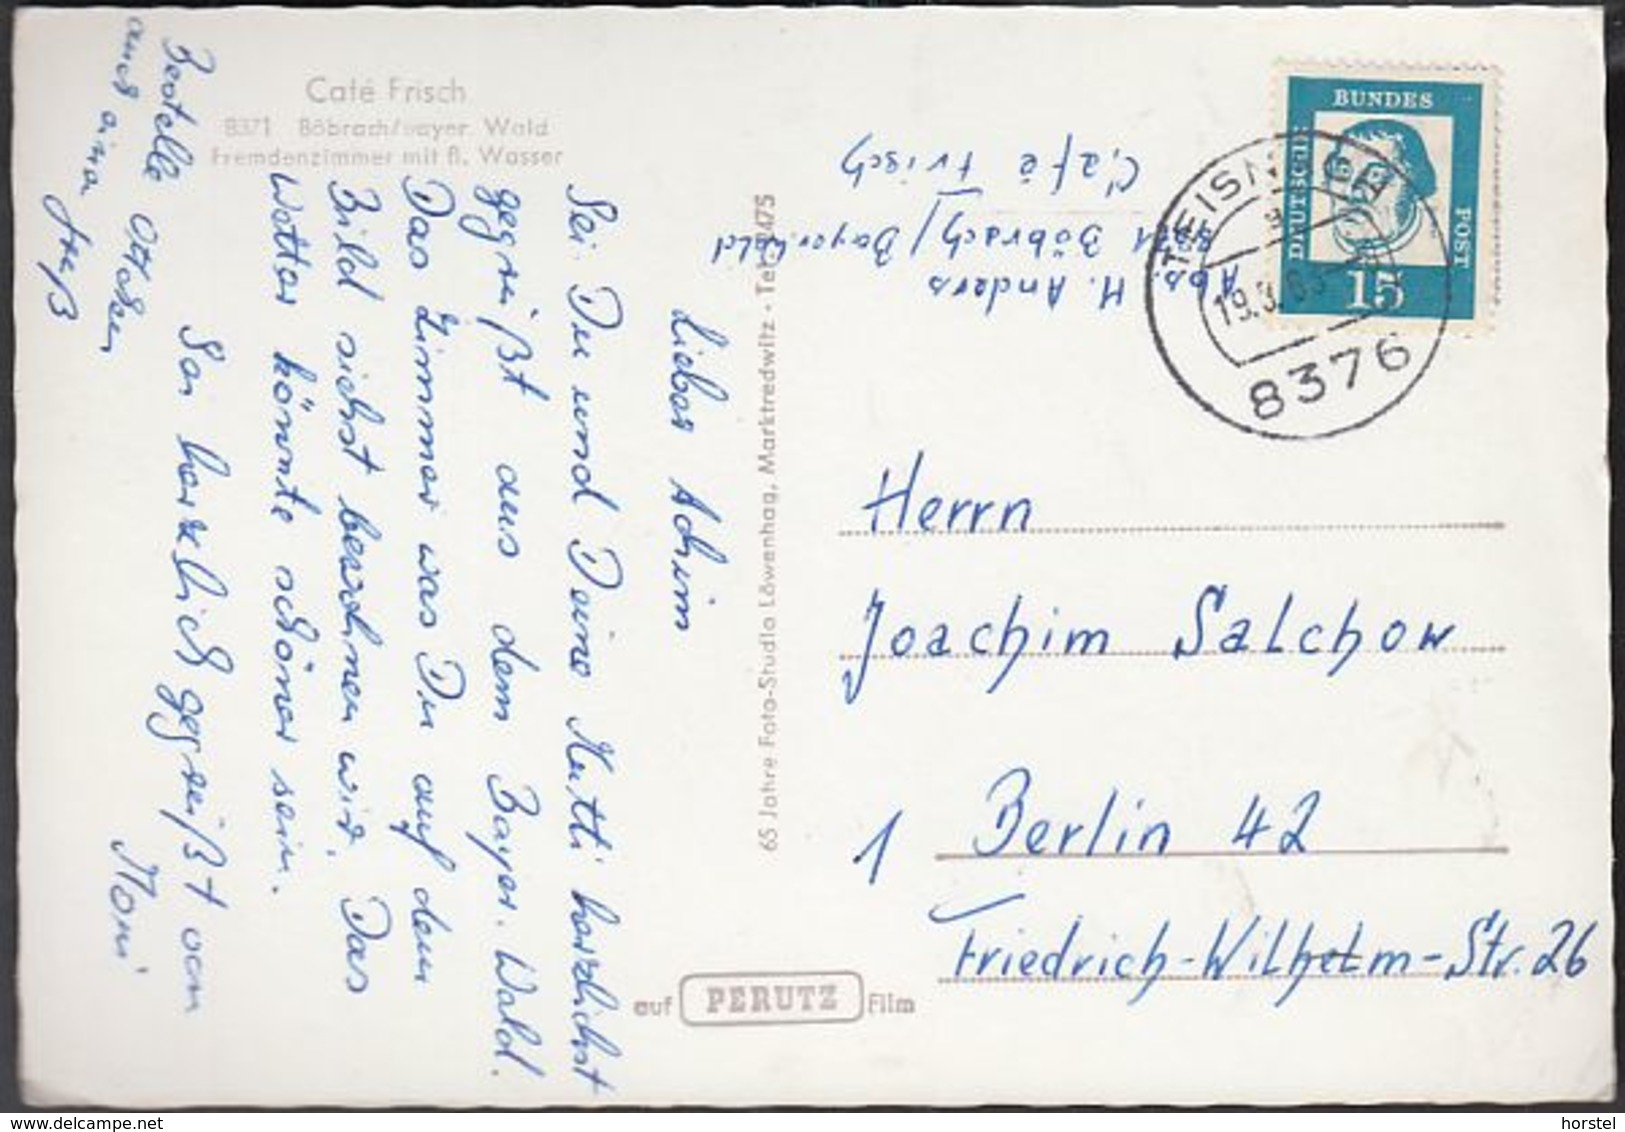 Café Frisch
8371 Böbrach/bayer. Wald
Fremdenzimmer mit fl. Wasser
Lieber Achim
Sei Du und Deine Mutti herzlichst
gegrüßt aus dem Bayer. Wald.
Das Zimmer was Du auf dem
Bild siehst bewohnen wir. Das
Wetter könnte schöner sein.
Sei herzlich gegrüßt von
Moni
Bestelle
auch
65 Jahre Foto-Studio Löwenhag, Marktredwitz · Tel. 2475
auf PERUTZ Film
Abs. H. Anders
8371 Böbrach/Bayer. Wald
Café Frisch
DEUTSCHE BUNDES POST
15
TEISNACH
8376
Herrn
Joachim Salchow
1 Berlin 42
Friedrich-Wilhelm-Str. 26
horstel